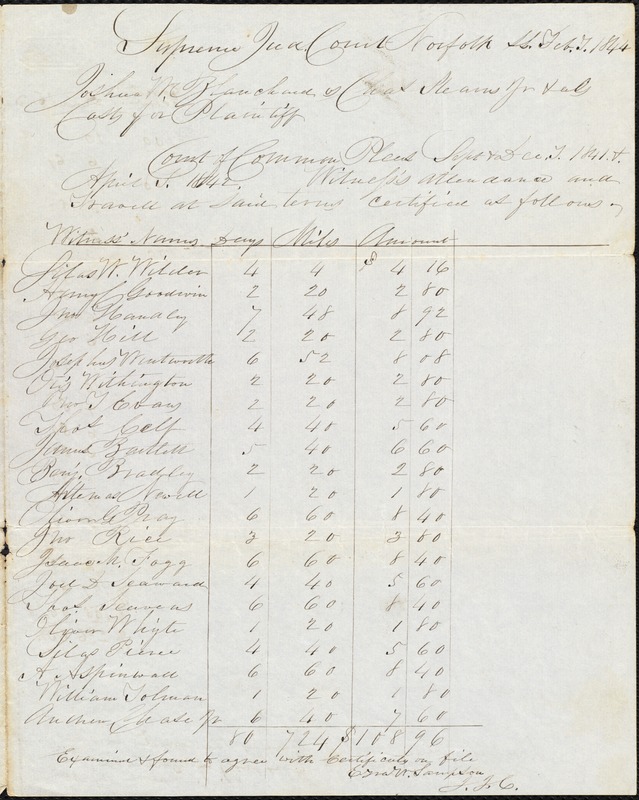 Supreme Jud. Court Norfolk ss. Feb. T. 1844
Joshua W. Blanchard vs Chas Stearns Jr & als
Costs for Plaintiff
Court of Common Pleas Sept & Dec T. 1841 &
April T. 1842. Witness attendance and
Travell at said terms certified as follows.
Witness' Names Days Miles Amount
Silas W. Wilder 4 4 $ 4 16
Henry C Goodwin 2 20 2 80
Jno Handley 7 48 8 92
Geo Hill 2 20 2 80
Josephus Wentworth 6 52 8 08
Otis Withington 2 20 2 80
T Evans 2 20 2 80
Thos 4 40 5 60
James Bartlett 5 40 6 60
Benj. Bradley 2 20 2 80
Artemas Newell 1 20 1 80
Gray 6 60 8 40
Jno Rice 3 20 3 80
Isaac M. Fogg 6 60 8 40
Joel D Seaward 4 40 5 60
Thos 6 60 8 40
Oliver Whyte 1 20 1 80
Silas Pierce 4 40 5 60
A Aspinwall 6 60 8 40
William Tolman 1 20 1 80
Andrew Chase Jr 6 40 7 60
80 724 $108 96
Examined & found to agree with Certificates on file
Ezra W. Sampson